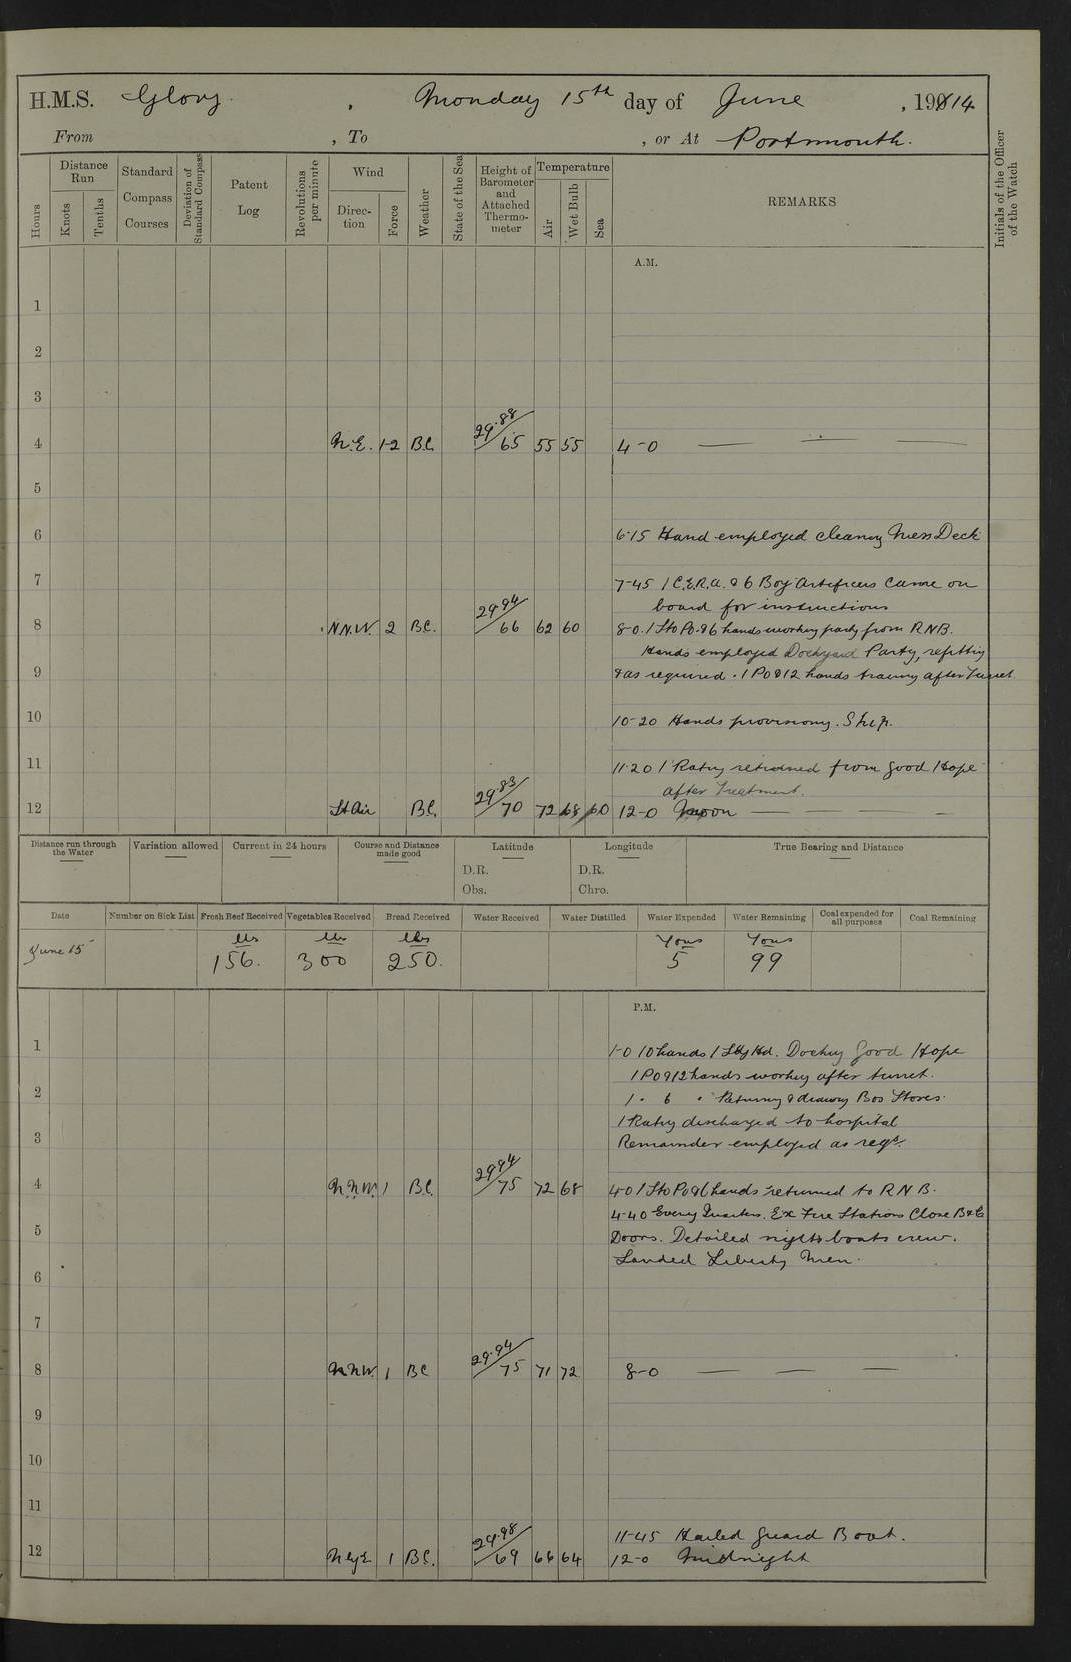 H.M.S. Glory , Monday 15th day of June , 1914
From , To , or At Portsmouth.
Hours
Distance Run
Knots
Tenths
Standard Compass Courses
Deviation of Standard Compass
Patent Log
Revolutions per minute
Wind
Direction
Force
Weather
State of the Sea
Height of Barometer and Attached Thermometer
Temperature
Air
Wet Bulb
Sea
REMARKS
Initials of the Officer of the Watch
A.M.
1
2
3
4 N.E. 1-2 B.C. 29.88/65 55 55 4-0 — — —
5
6 6-15 Hand employed cleaning Mess Deck
7 7-45 1 C.E.R.A. & 6 Boy Artificers came on
board for instructions
8 N.N.W. 2 B.C. 29.94/66 62 60 8-0. 1 Sto Po. & 6 hands working party from R.N.B.
Hands employed Dockyard Party, refitting
9 & as required. 1 PO & 12 hands training after Turret
10 10-20 Hands provisioning Ship.
11 11-20 1 Rating returned from Good Hope
after Treatment.
12 Lt Air B.C. 29.83/70 72 68 60 12-0 Noon — — —
Distance run through the Water
Variation allowed
Current in 24 hours
Course and Distance made good
Latitude
D.R.
Obs.
Longitude
D.R.
Chro.
True Bearing and Distance
Date Number on Sick List Fresh Beef Received Vegetables Received Bread Received Water Received Water Distilled Water Expended Water Remaining Coal expended for all purposes Coal Remaining
June 15 lbs 156. lbs 300 lbs 250. Tons 5 Tons 99
P.M.
1 1-0 10 hands 1 Ldg Hd. Docking Good Hope
1 PO & 12 hands working after turret.
2 1 " 6 " Returning & drawing Bos Stores.
1 Rating discharged to hospital
3 Remainder employed as reqd.
4 N.N.W. 1 B.C. 29.94/75 72 68 4-0 1 Sto Po & 6 hands returned to R.N.B.
4-40 Evening Quarters. Ex Fire Stations Close B & C
5 Doors. Detailed nights boats crew.
Landed Liberty Men.
6
7
8 N.N.W. 1 BC 29.94/75 71 72 8-0 — — —
9
10
11
11-45 Hailed Guard Boat.
12 N by E 1 B.C. 29.98/69 66 64 12-0 Midnight